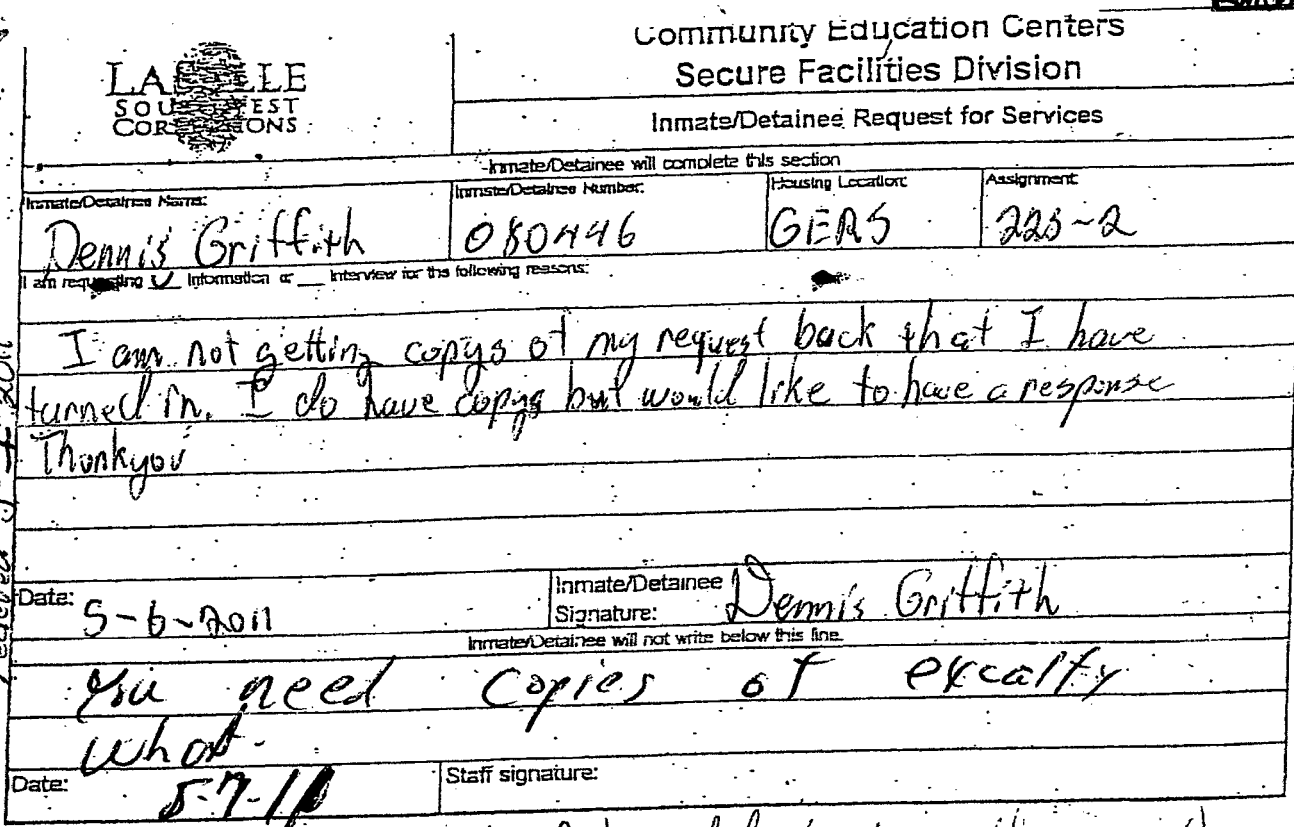 Community Education Centers
Secure Facilities Division
Inmate/Detainee Request for Services
LASALLE
SOUTHWEST
CORRECTIONS
Inmate/Detainee will complete this section
Inmate/Detainee Name: Inmate/Detainee Number: Housing Location: Assignment:
Dennis Griffith 080446 GERS 223-2
I am requesting Information or __ Interview for the following reasons:
I am not getting copys of my request back that I have
turned in. I do have copys but would like to have a response
Thankyou
Date: 5-6-2011 Inmate/Detainee Signature: Dennis Griffith
Inmate/Detainee will not write below this line.
You need copies of excalty
what.
Date: 5-7-11 Staff signature: